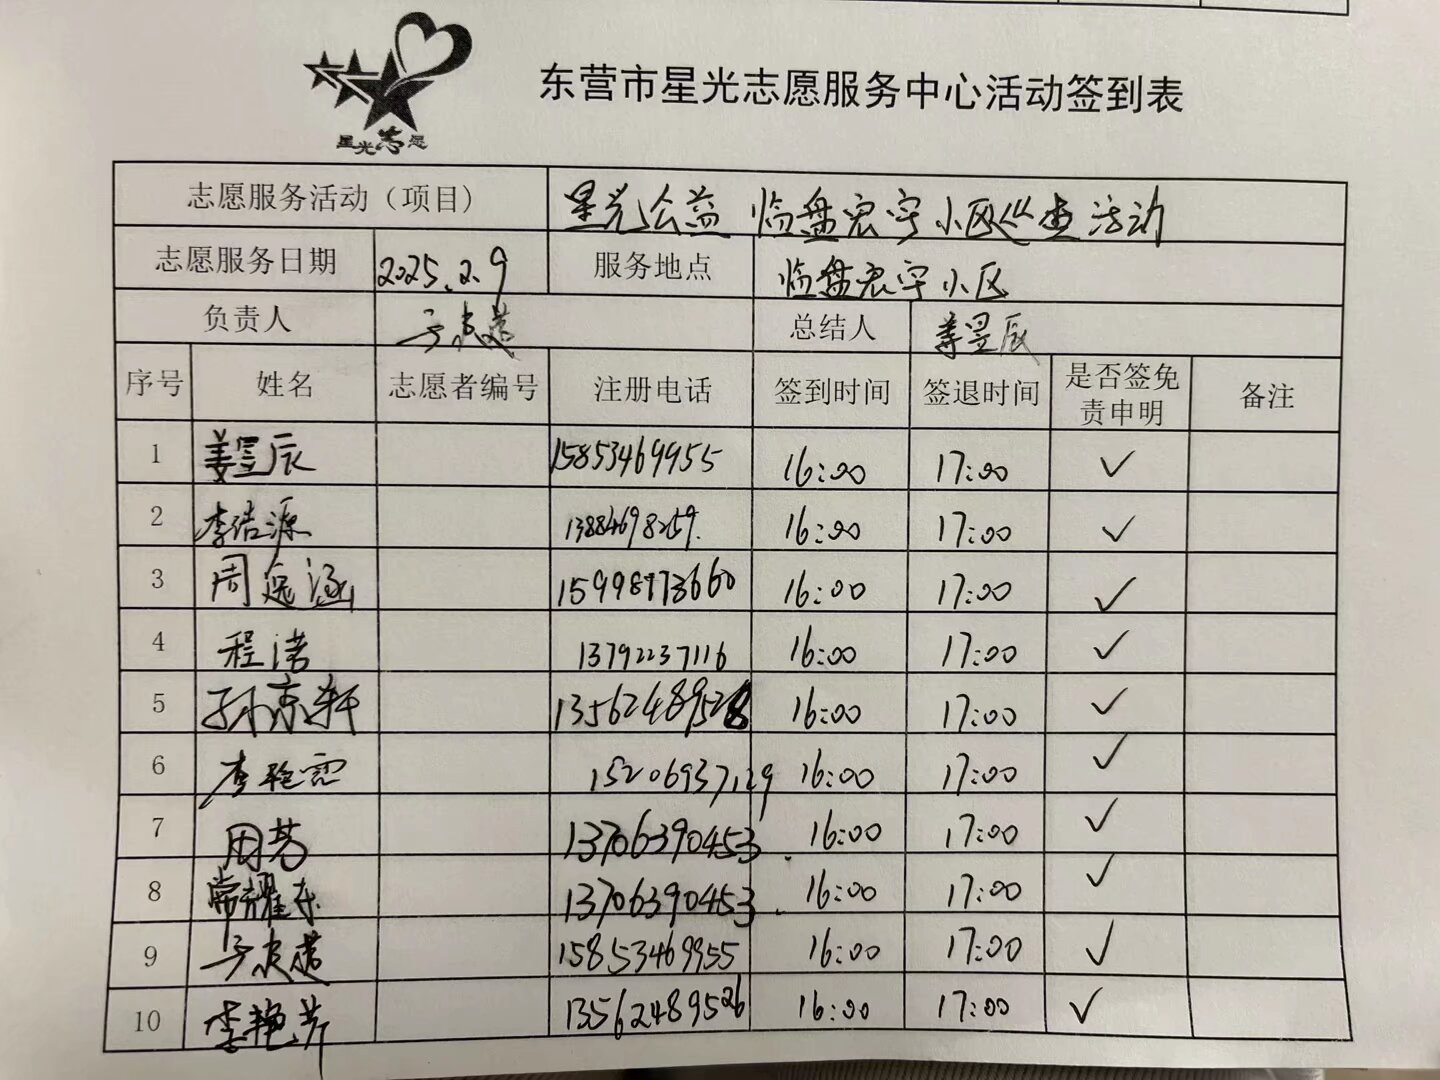 星光志愿
东营市星光志愿服务中心活动签到表
志愿服务活动（项目） 星光公益 临盘宏宇小区巡查活动
志愿服务日期 2025.2.9 服务地点 临盘宏宇小区
负责人 总结人 姜昱辰
序号 姓名 志愿者编号 注册电话 签到时间 签退时间 是否签免责申明 备注
1 姜昱辰 15853469955 16:00 17:00 ✓
2 李浩源 13884698259. 16:00 17:00 ✓
3 周逸涵 15998773660 16:00 17:00 ✓
4 程诺 13792237116 16:00 17:00 ✓
5 孙京轩 13562489528 16:00 17:00 ✓
6 李艳霞 15206937129 16:00 17:00 ✓
7 周芳 13706390453. 16:00 17:00 ✓
8 常耀东 13706390453. 16:00 17:00 ✓
9 15853469955 16:00 17:00 ✓
10 李艳芹 13562489526 16:00 17:00 ✓